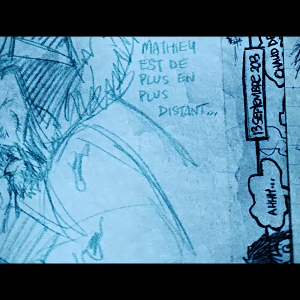 MATHIEU
EST DE
PLUS EN
PLUS
DISTANT...
13 SEPTEMBRE 2013
CHAUD
AHHH...